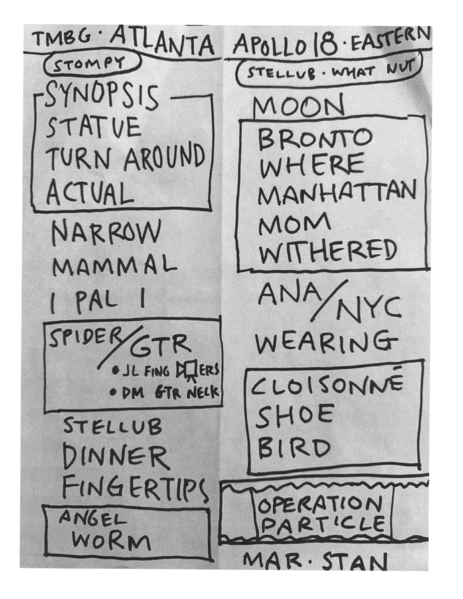 TMBG · ATLANTA
STOMPY
SYNOPSIS
STATUE
TURN AROUND
ACTUAL
NARROW
MAMMAL
I PAL I
SPIDER/GTR
• JL FINGERS
• DM GTR NECK
STELLUB
DINNER
FINGERTIPS
ANGEL
WORM
APOLLO 18 · EASTERN
STELLUB · WHAT NUT
MOON
BRONTO
WHERE
MANHATTAN
MOM
WITHERED
ANA/NYC
WEARING
CLOISONNÉ
SHOE
BIRD
OPERATION
PARTICLE
MAR · STAN